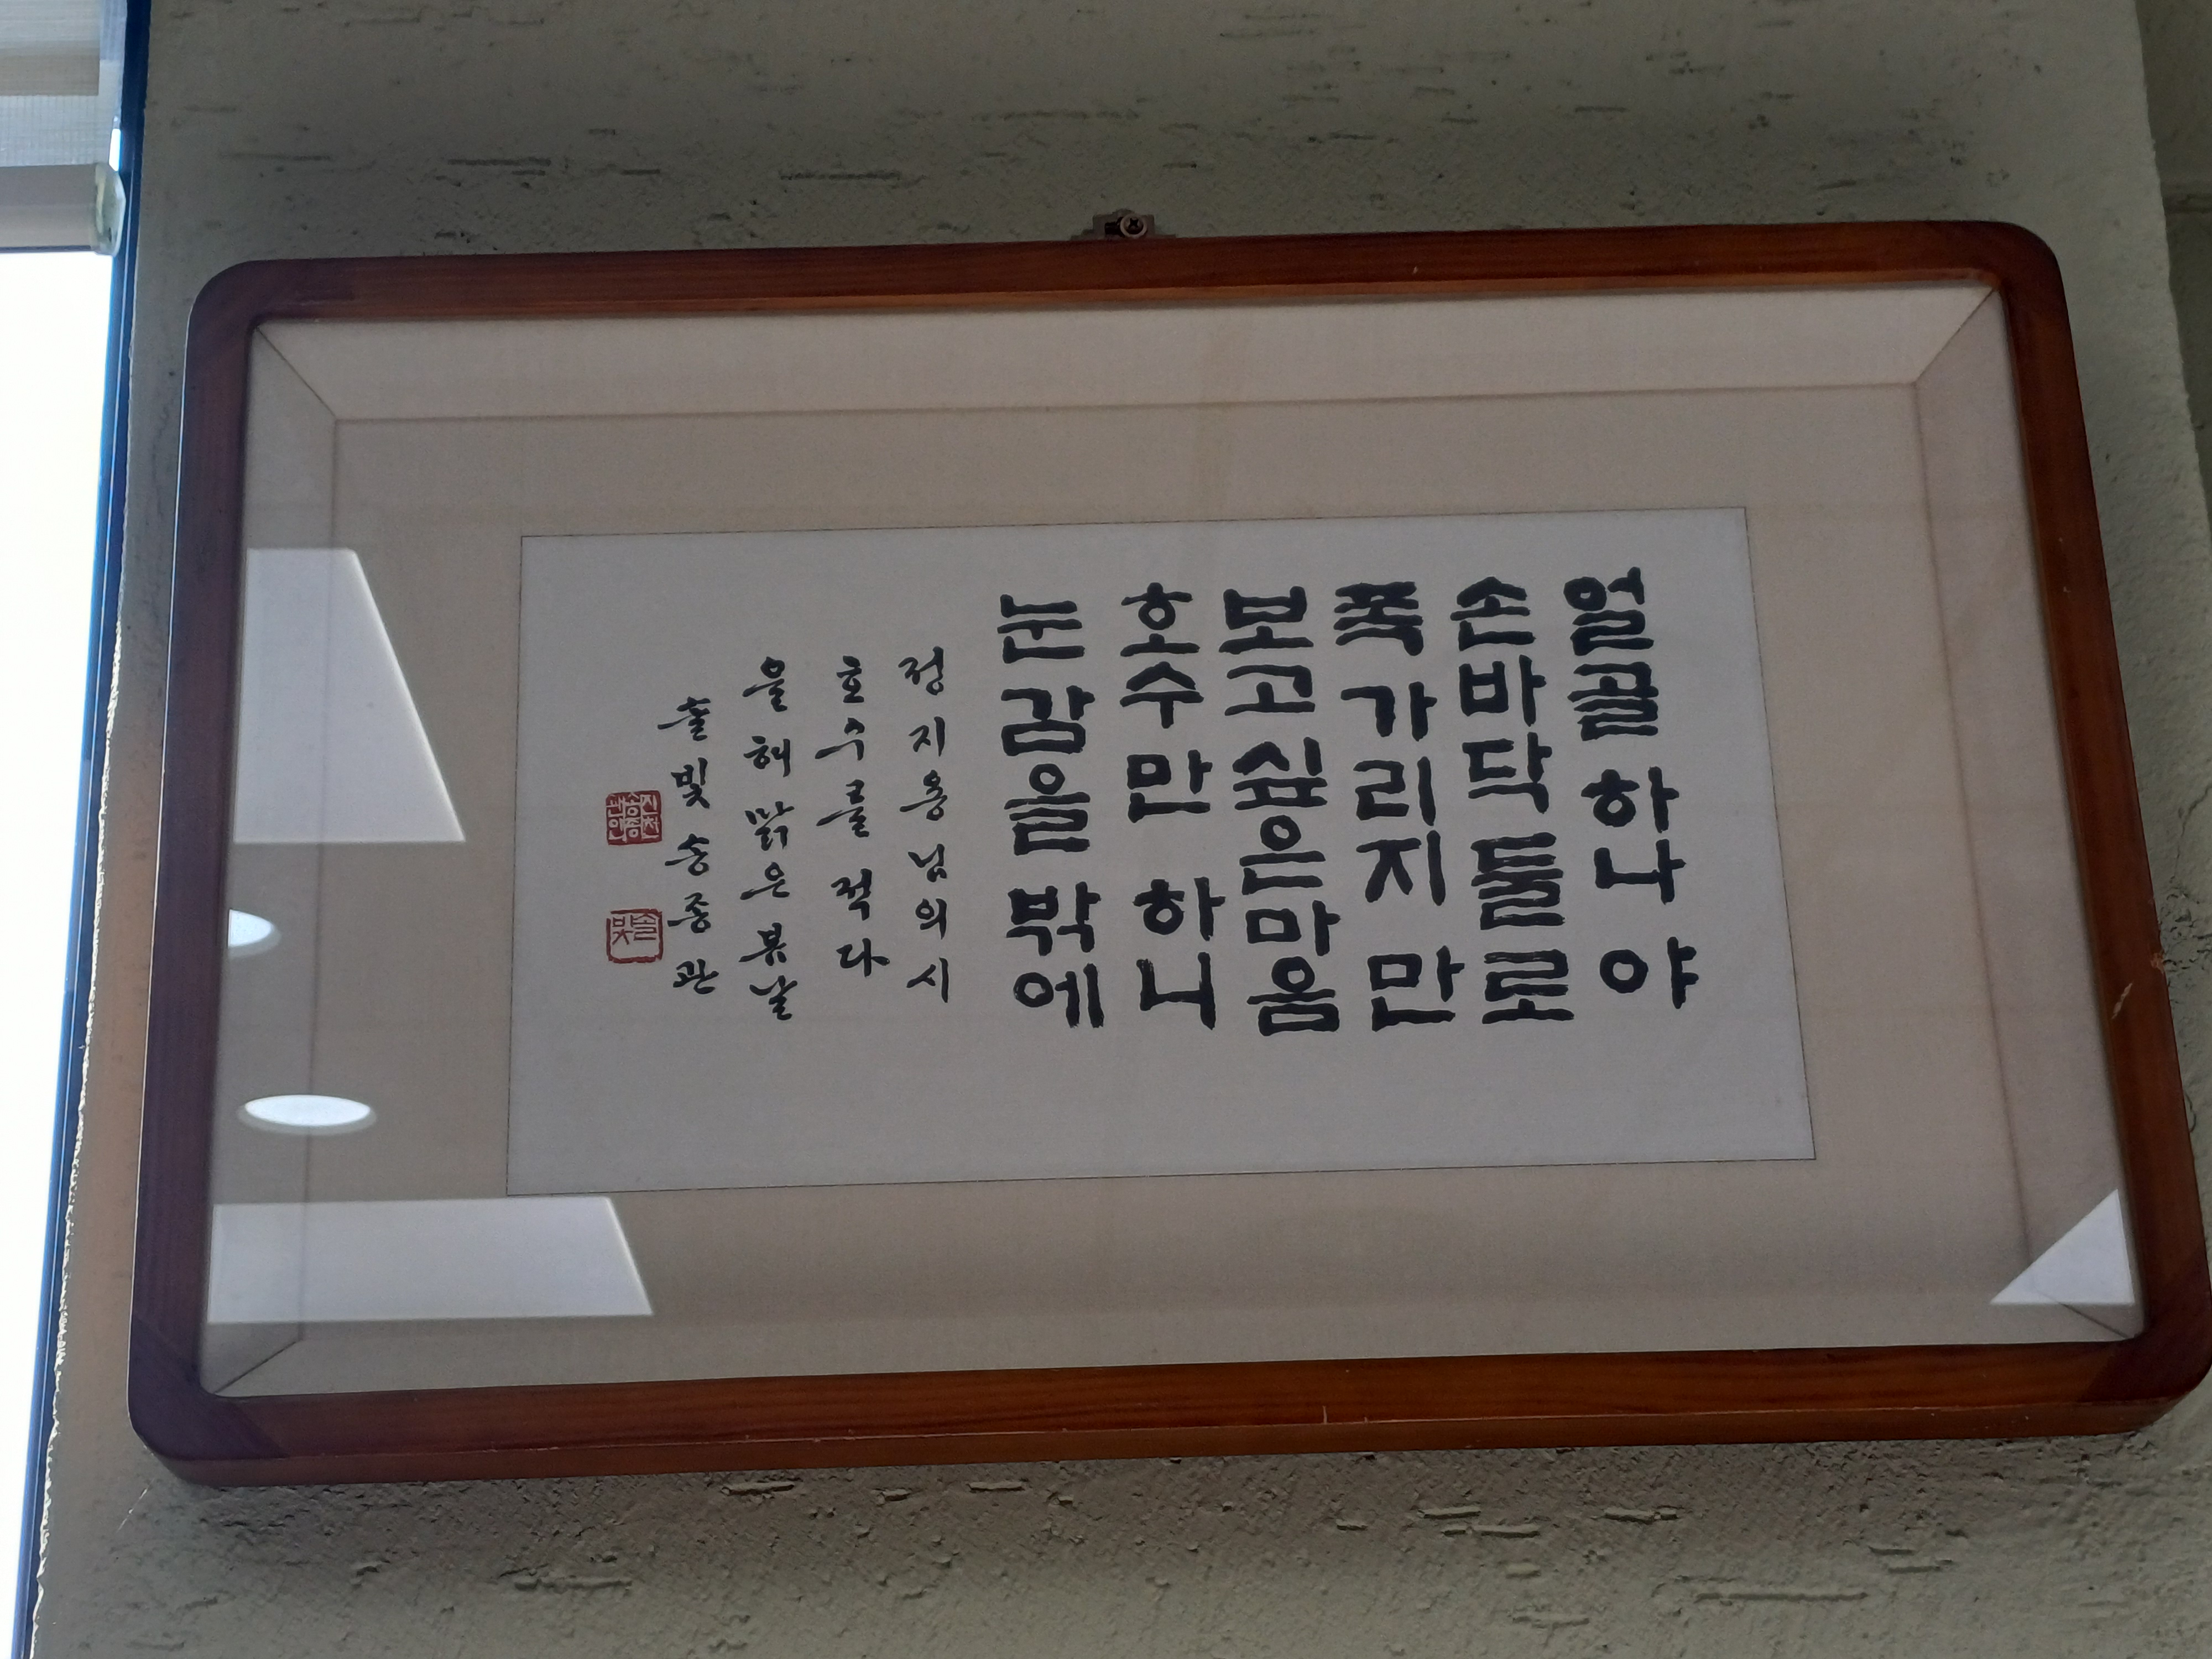 얼골 하나 야
손바닥 둘로
폭 가리지 만
보고 싶은 마음
호수만 하니
눈 감을 밖에
정지용님의 시
호수를 적다
을해 맑은 봄날
솔빛 송종관